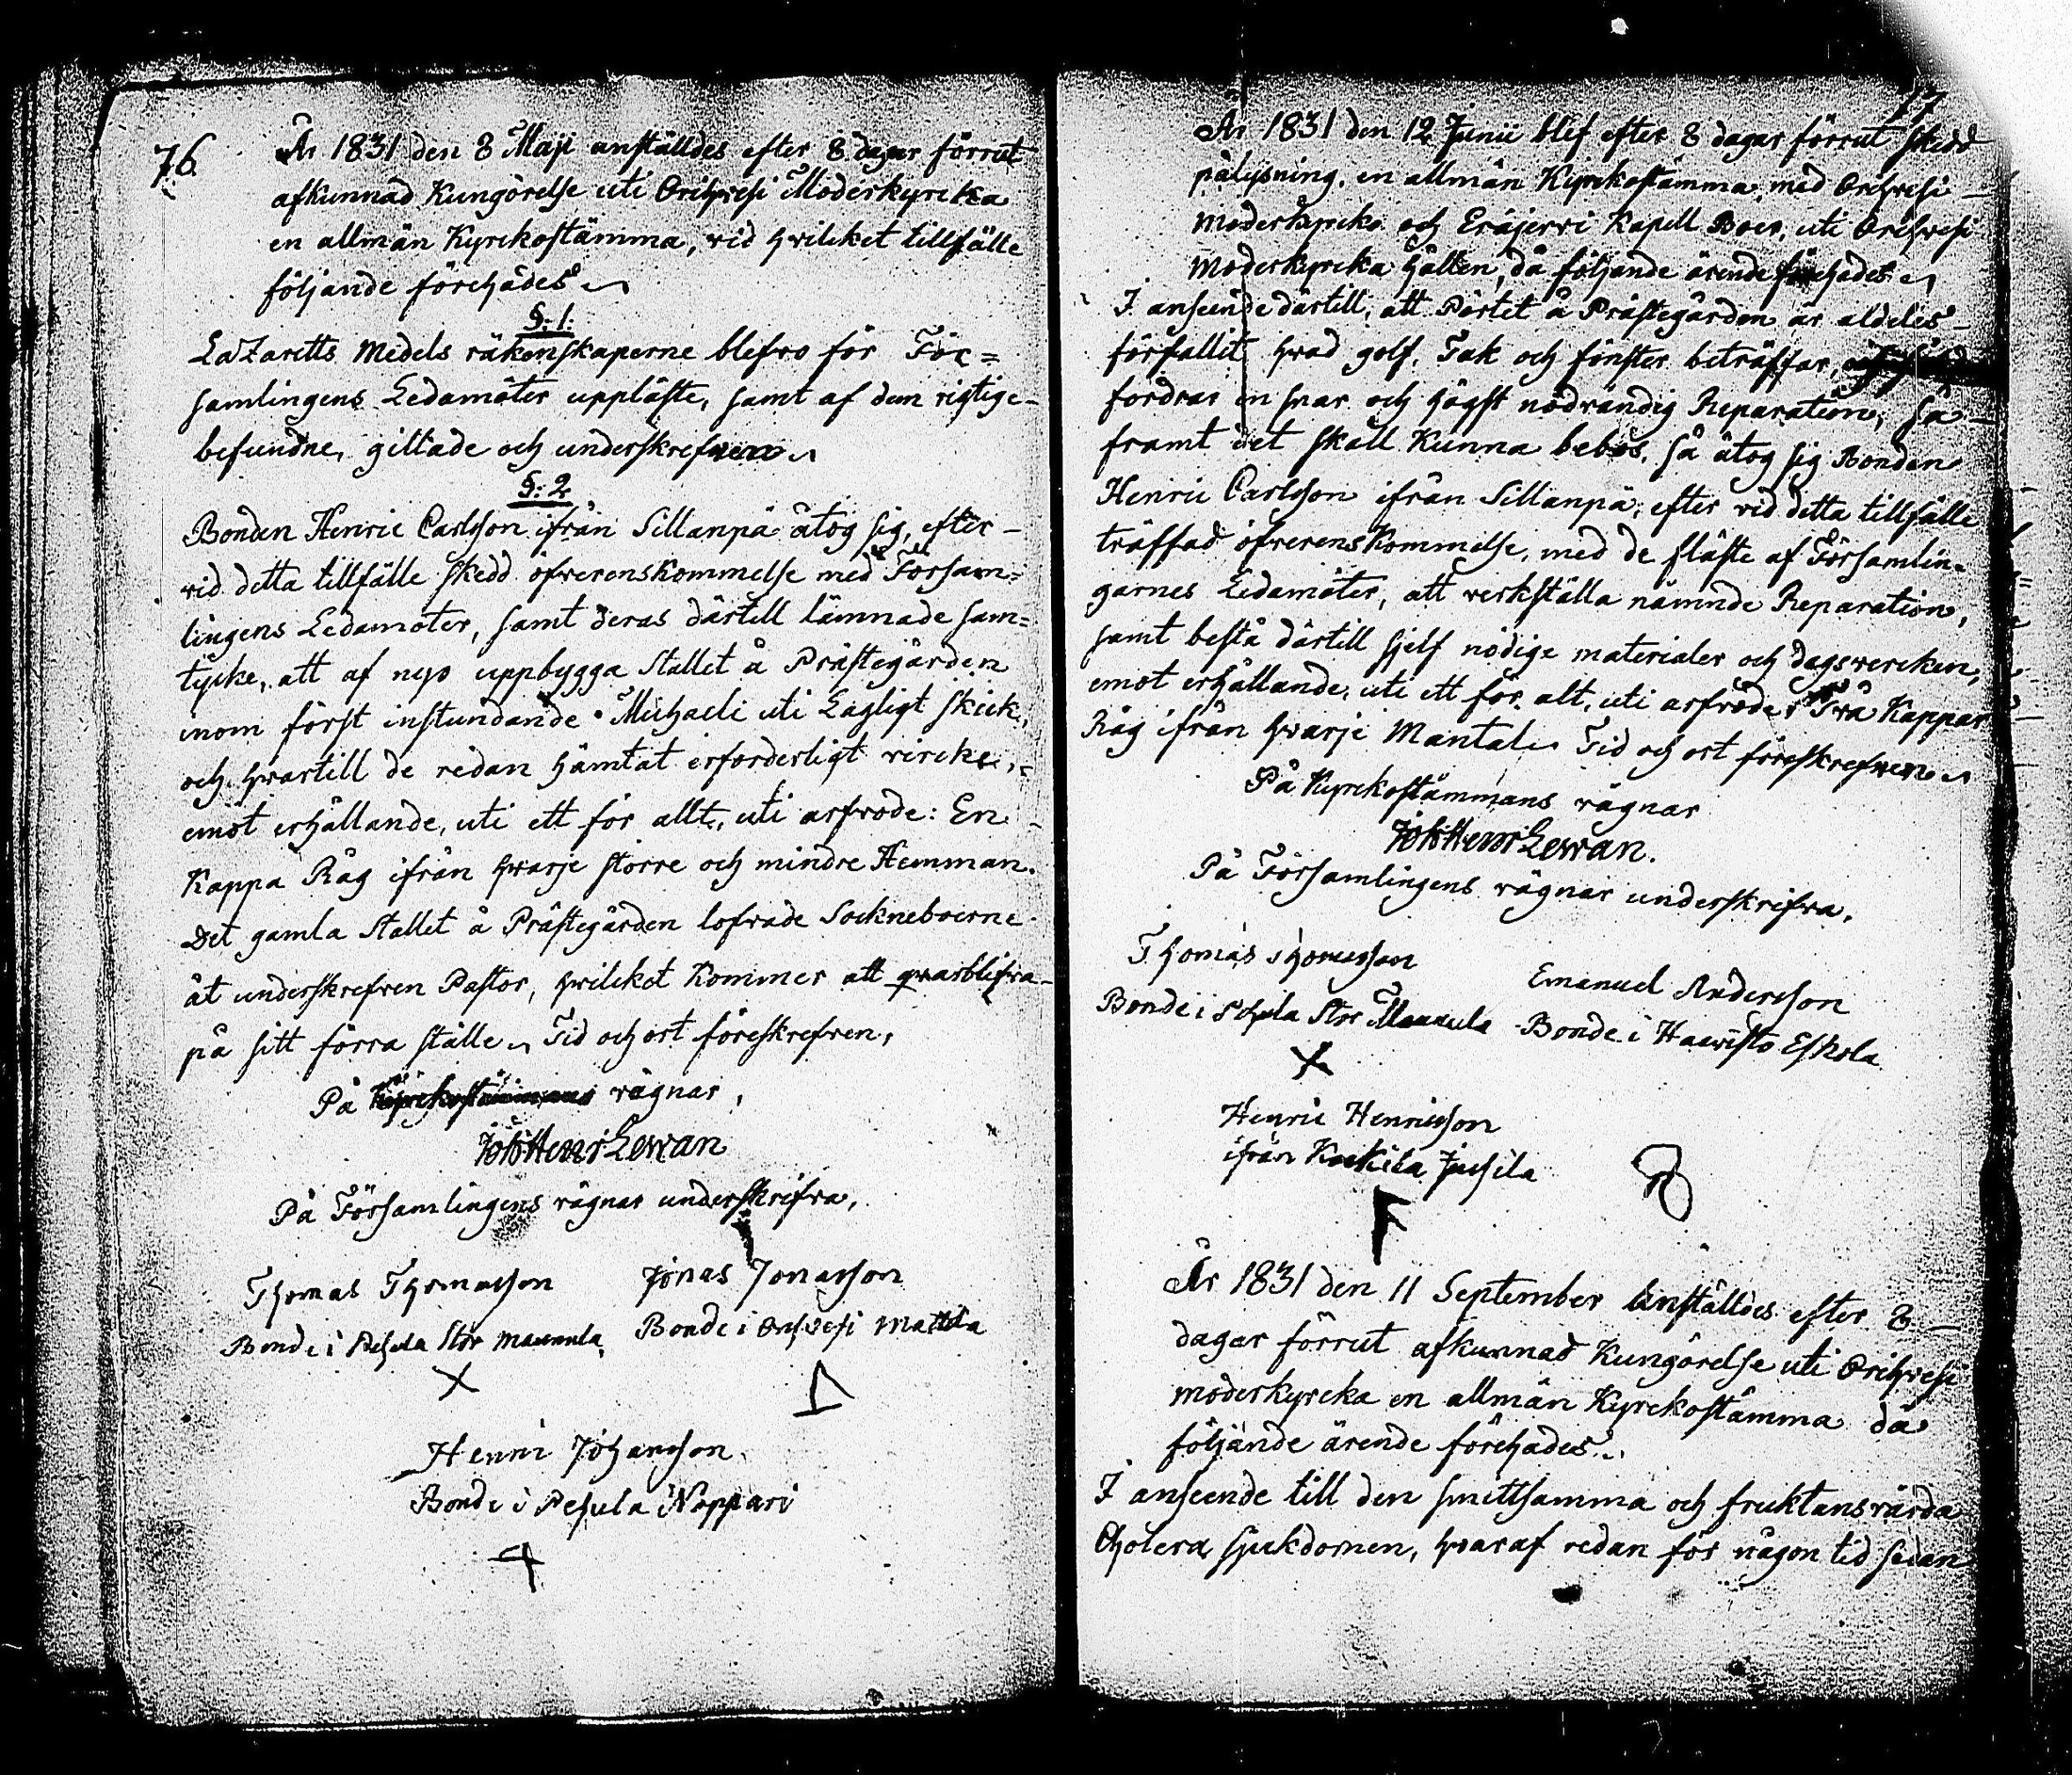 76.
År 1831 den 8 Maji anställdes efter 8 dagar förrut
afkunnad Kungörelse uti Orihvesi Moderkyrcka
en allmän Kyrckostämma, vid hvilcket tillfälle
följande förehades
§: 1:
Lazaretts Medels räkenskaperne blefvo för För=
samlingens Ledamöter uppläste, samt af dem rigtige
befundne, gillade och underskrefven
§: 2
Bonden Henric Carlsson ifrån Sillanpä åtog sig, efter
vid detta tillfälle skedd öfverenskommelse med Försam=
lingens Ledamöter, samt deras därtill lämnade sam=
tycke, att af nyo uppbygga Stallet å Prästegården
inom först instundande Michaeli uti Lagligt skick,
och hvartill de redan hämtat erforderligt vircke,
emot erhållande, uti ett för allt, uti arfvode: En
Kappa Råg ifrån hvarje större och mindre Hemman.
Det gamla Stallet å Prästegården lofvade Sockneboerne
åt underskrefven Pastor, hvilcket kommer att qvarblifva
på sitt förra ställe Tid och ort föreskrefven,
På Kyrckostämmans vägnar,
Joh Henr Levan
På Församlingens vägnar underskrifva,
Thomas Thomasson
Bonde i Pehula Stor Maunula
X
Jonas Jonasson
Bonde i Orihvesi Mattila
Henric Johansson
Bonde i Pehula Noppari
77
År 1831 den 12 Junii blef efter 8 dagar förrut skedd
pålysning, en allmän Kyrckostämma med Orihvesi
Moderkyrcko och Eräjervi Kapell Boer, uti Orihvesi
Moderkyrcka hållen, då följande ärende förehades
I anseende därtill, att Pörtet å Prästegården är aldeles
förfallit hvad golf, Tak och fönster beträffar,
fordrar en snar och högst nödvändig Reparation, så
framt det skall kunna bebos, så åtog sig Bonden
Henric Carlsson ifrån Sillanpä, efter vid detta tillfälle
träffad öfverenskommelse, med de fläste af Församlin=
garnes Ledamöter, att verkställa nämnde Reparation,
samt bestå därtill sjelf nödige materialer och dagsvercken,
emot erhållande, uti ett för alt, uti arfvode, Två Kappar
Råg ifrån hvarje Mantal. Tid och ort föreskrefven
På Kyrckostämmans vägnar
Joh Henr Levan.
På Församlingens vägnar underskrifva,
Thomas Thomasson
Bonde i Pehula Stor Maunula
X
Emanuel Andersson
Bonde i Haavisto Eskola
Henric Henricsson
ifrån Kockila Jussila
År 1831 den 11 September anställdes efter 8
dagar förrut afkunnad Kungörelse uti Orihvesi
moderkyrcka en allmän Kyrckostämma då
följande ärende förehades
I anseende till den smittsamma och fruktansvärda
Cholera sjukdomen, hvaraf redan för någon tid sedan